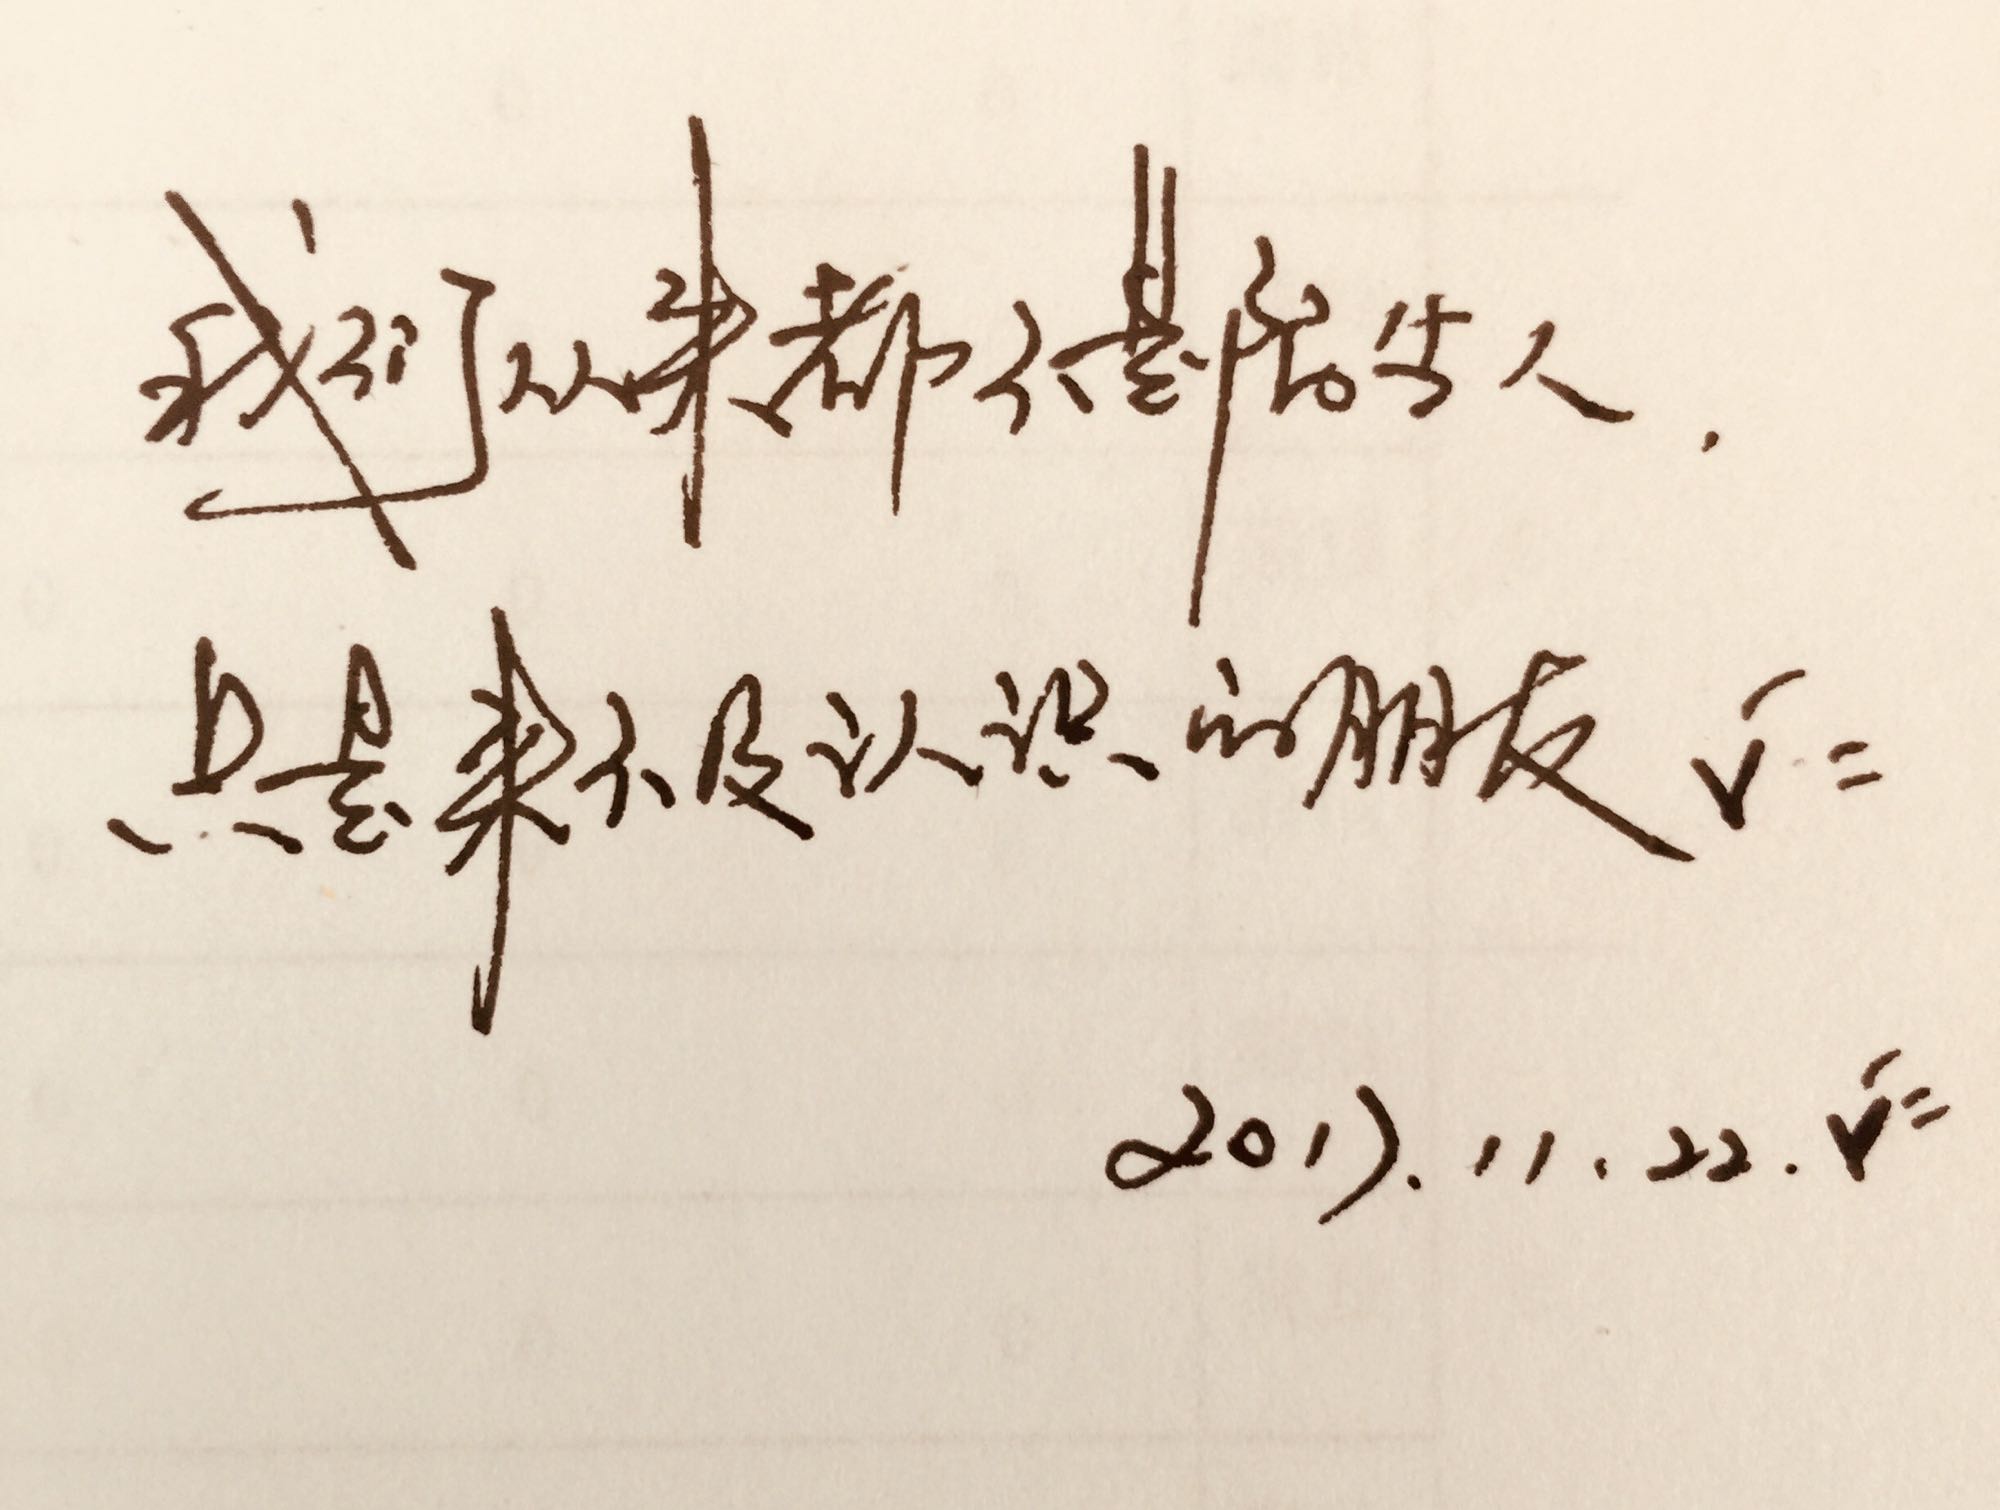 我们从来都不是陌生人.
只是来不及认识的朋友
2017.11.22.